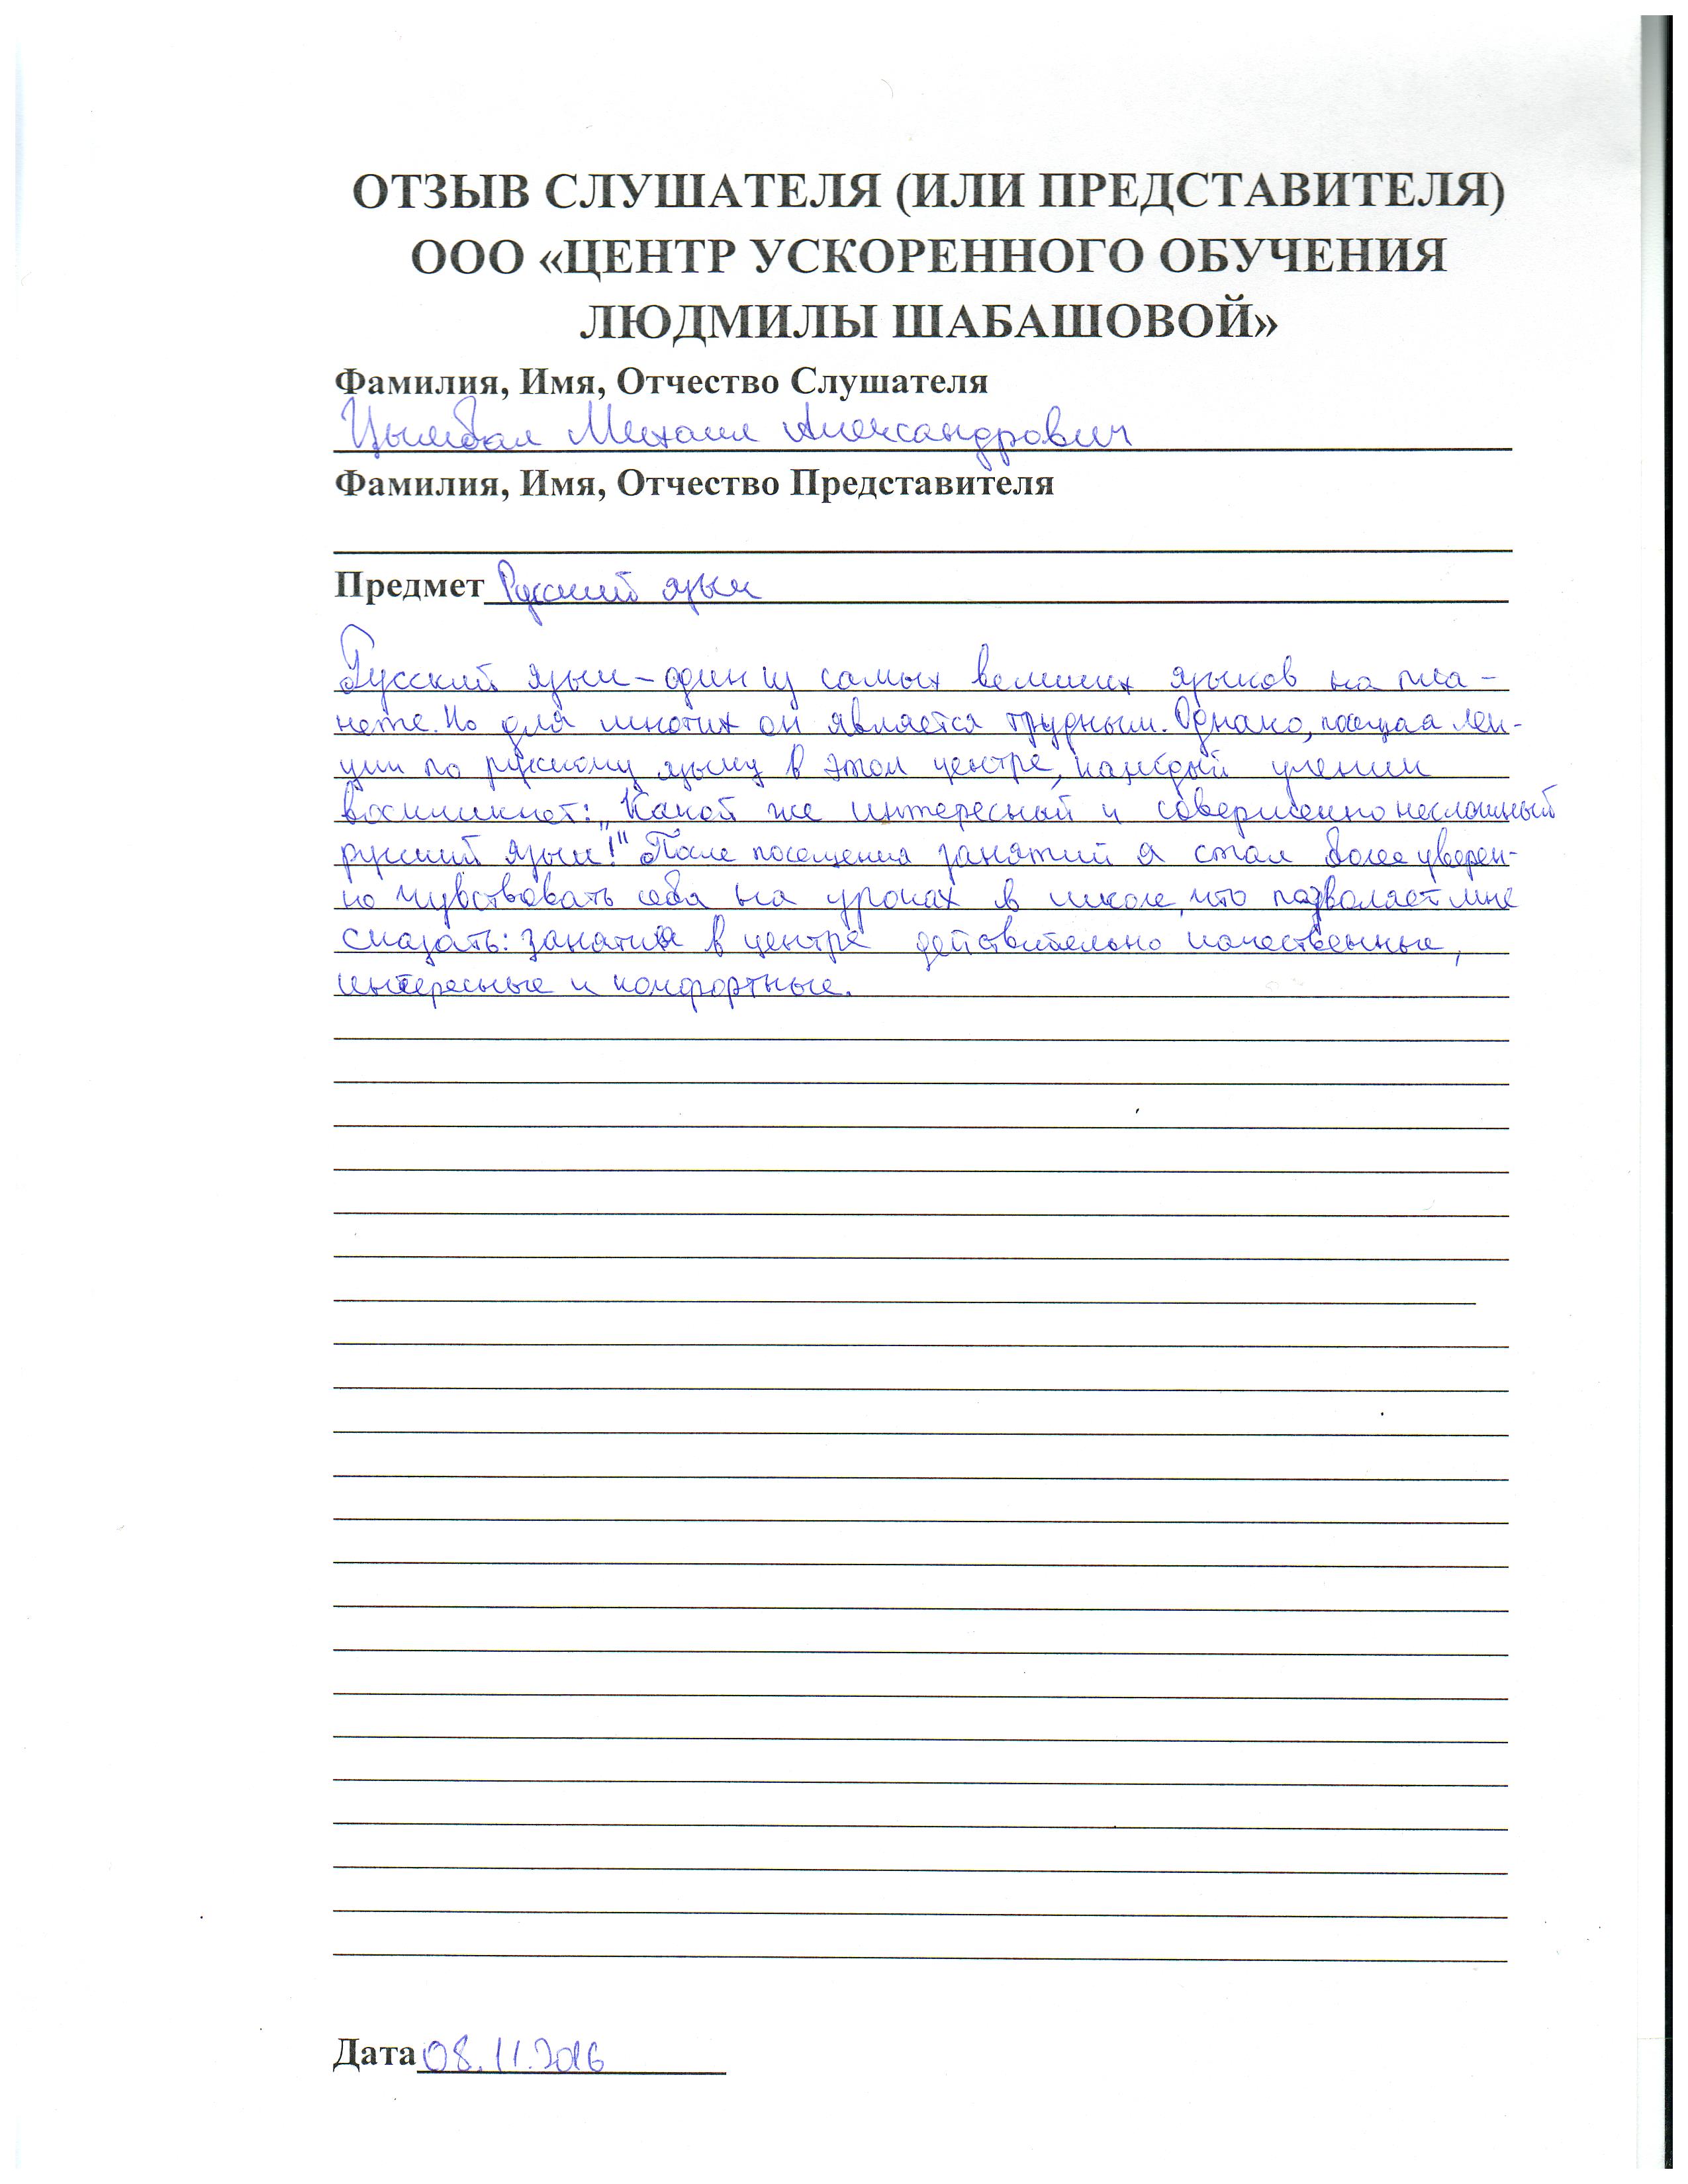 ОТЗЫВ СЛУШАТЕЛЯ (ИЛИ ПРЕДСТАВИТЕЛЯ)
ООО «ЦЕНТР УСКОРЕННОГО ОБУЧЕНИЯ
ЛЮДМИЛЫ ШАБАШОВОЙ»
Фамилия, Имя, Отчество Слушателя
Цымбал Михаил Александрович
Фамилия, Имя, Отчество Представителя
Предмет Русский язык
Русский язык – один из самых великих языков на пла-
нете. Но для многих он является трудным. Однако, посещая лек-
ции по русскому языку в этом центре, каждый ученик
воскликнет: „Какой же интересный и совершенно несложный
русский язык!" После посещения занятий я стал более уверен-
но чувствовать себя на уроках в школе, что позволяет мне
сказать: занятия в центре действительно качественные,
интересные и комфортные.
Дата 08.11.2016